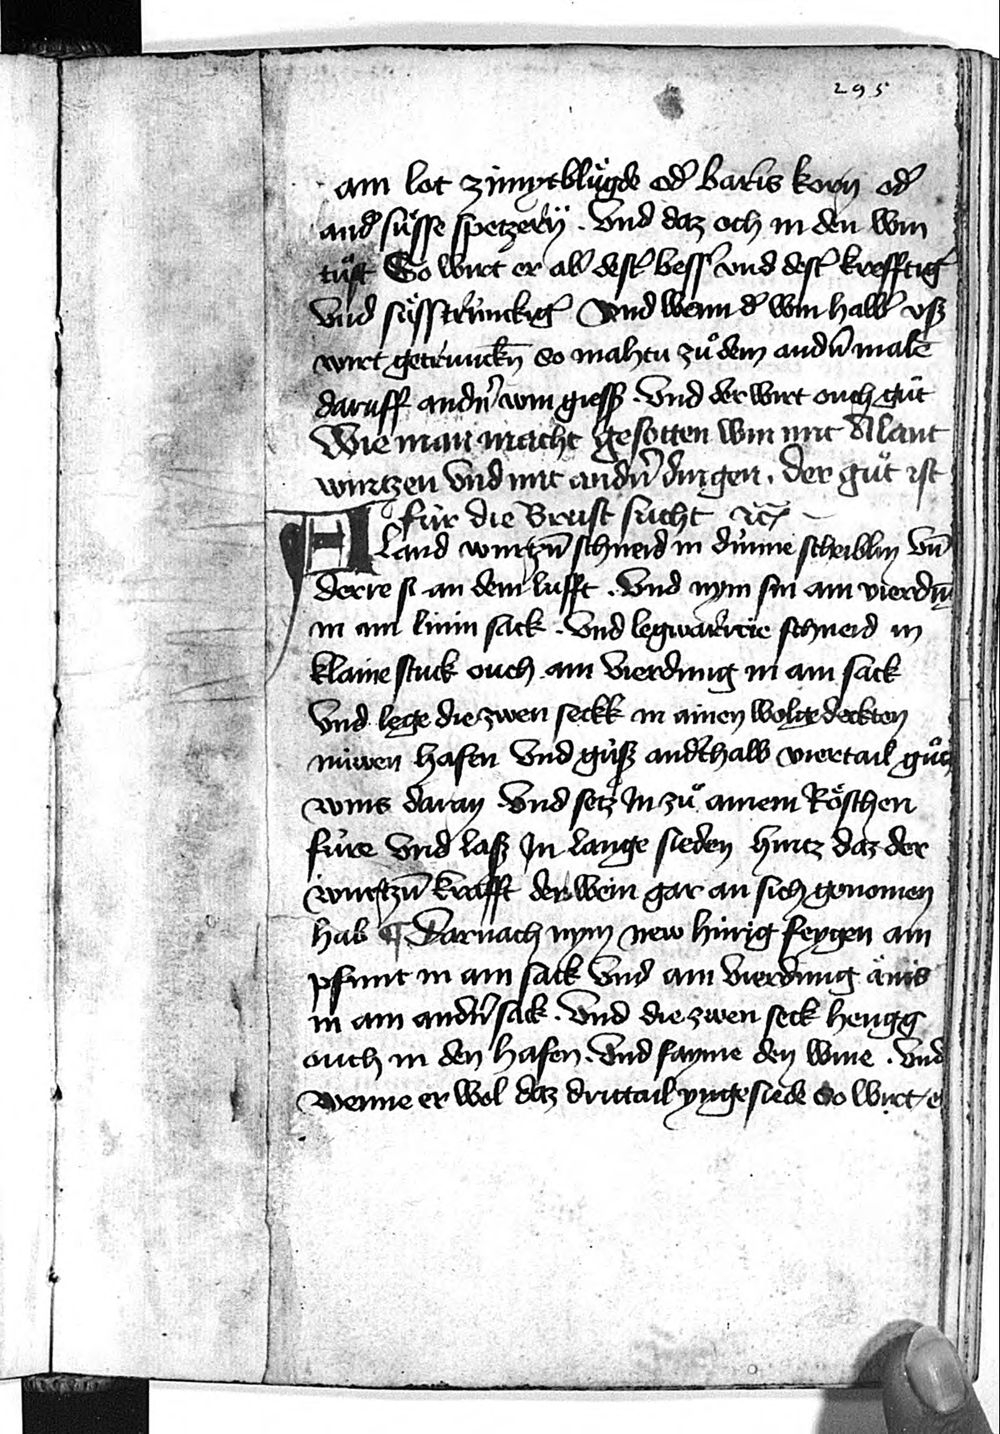 295
ain lot zimytblůgde od' baris korn od'
and' sůsse spetzerÿ . Vnd daz och in den win
tůst So wirt er all' dest' bess' vnd dest' krefftig'
vnd sůsstrinckig' Vnd wenn d' win halb' vsz
wirt getrunckn̄ so mahtu zů dem andn̄ male
daruff andn̄ win giessz . Vnd der wirt ouch gůt
Wie man macht gesotten win mit Alant
wurtzen Vnd mit andn̄ dingen . der gůt ist
fúr die Brust sucht ⁊c̄
ALand wurtzn̄ schneid in dúnne scheiblin vn̄
derre si an dem lufft . Vnd nym sin ain vierdūg
in ain linin sack . Vnd legwaricie schneid in
klaine stuck ouch ain vierdung in ain sack
Vnd lege die zwen seckk in ainen wolgedeckten
núwen hafen Vnd gúsz andˀthalb viertail gůcz
wins daran Vnd setz In zů ainem Röschen
fúre Vnd lasz In lange sieden hintz daz der
wurtzn̄ krafft der wein gar an sich genomen
hab ¶ Darnach nym new hiurig feygen ain
pfunt in ain sack Vnd ain vierdung änis
in ain andn̄ sack . Vnd die zwen seck hengg
ouch in den hafen . Vnd fayme den wine . Vnd
wenne er wol daz drittail yngesiede So wirt e